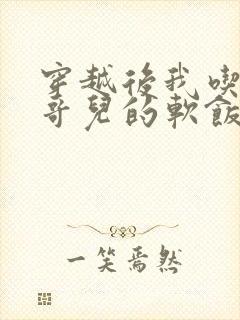 穿越後我喫
哥兒的軟飯
一笑焉然